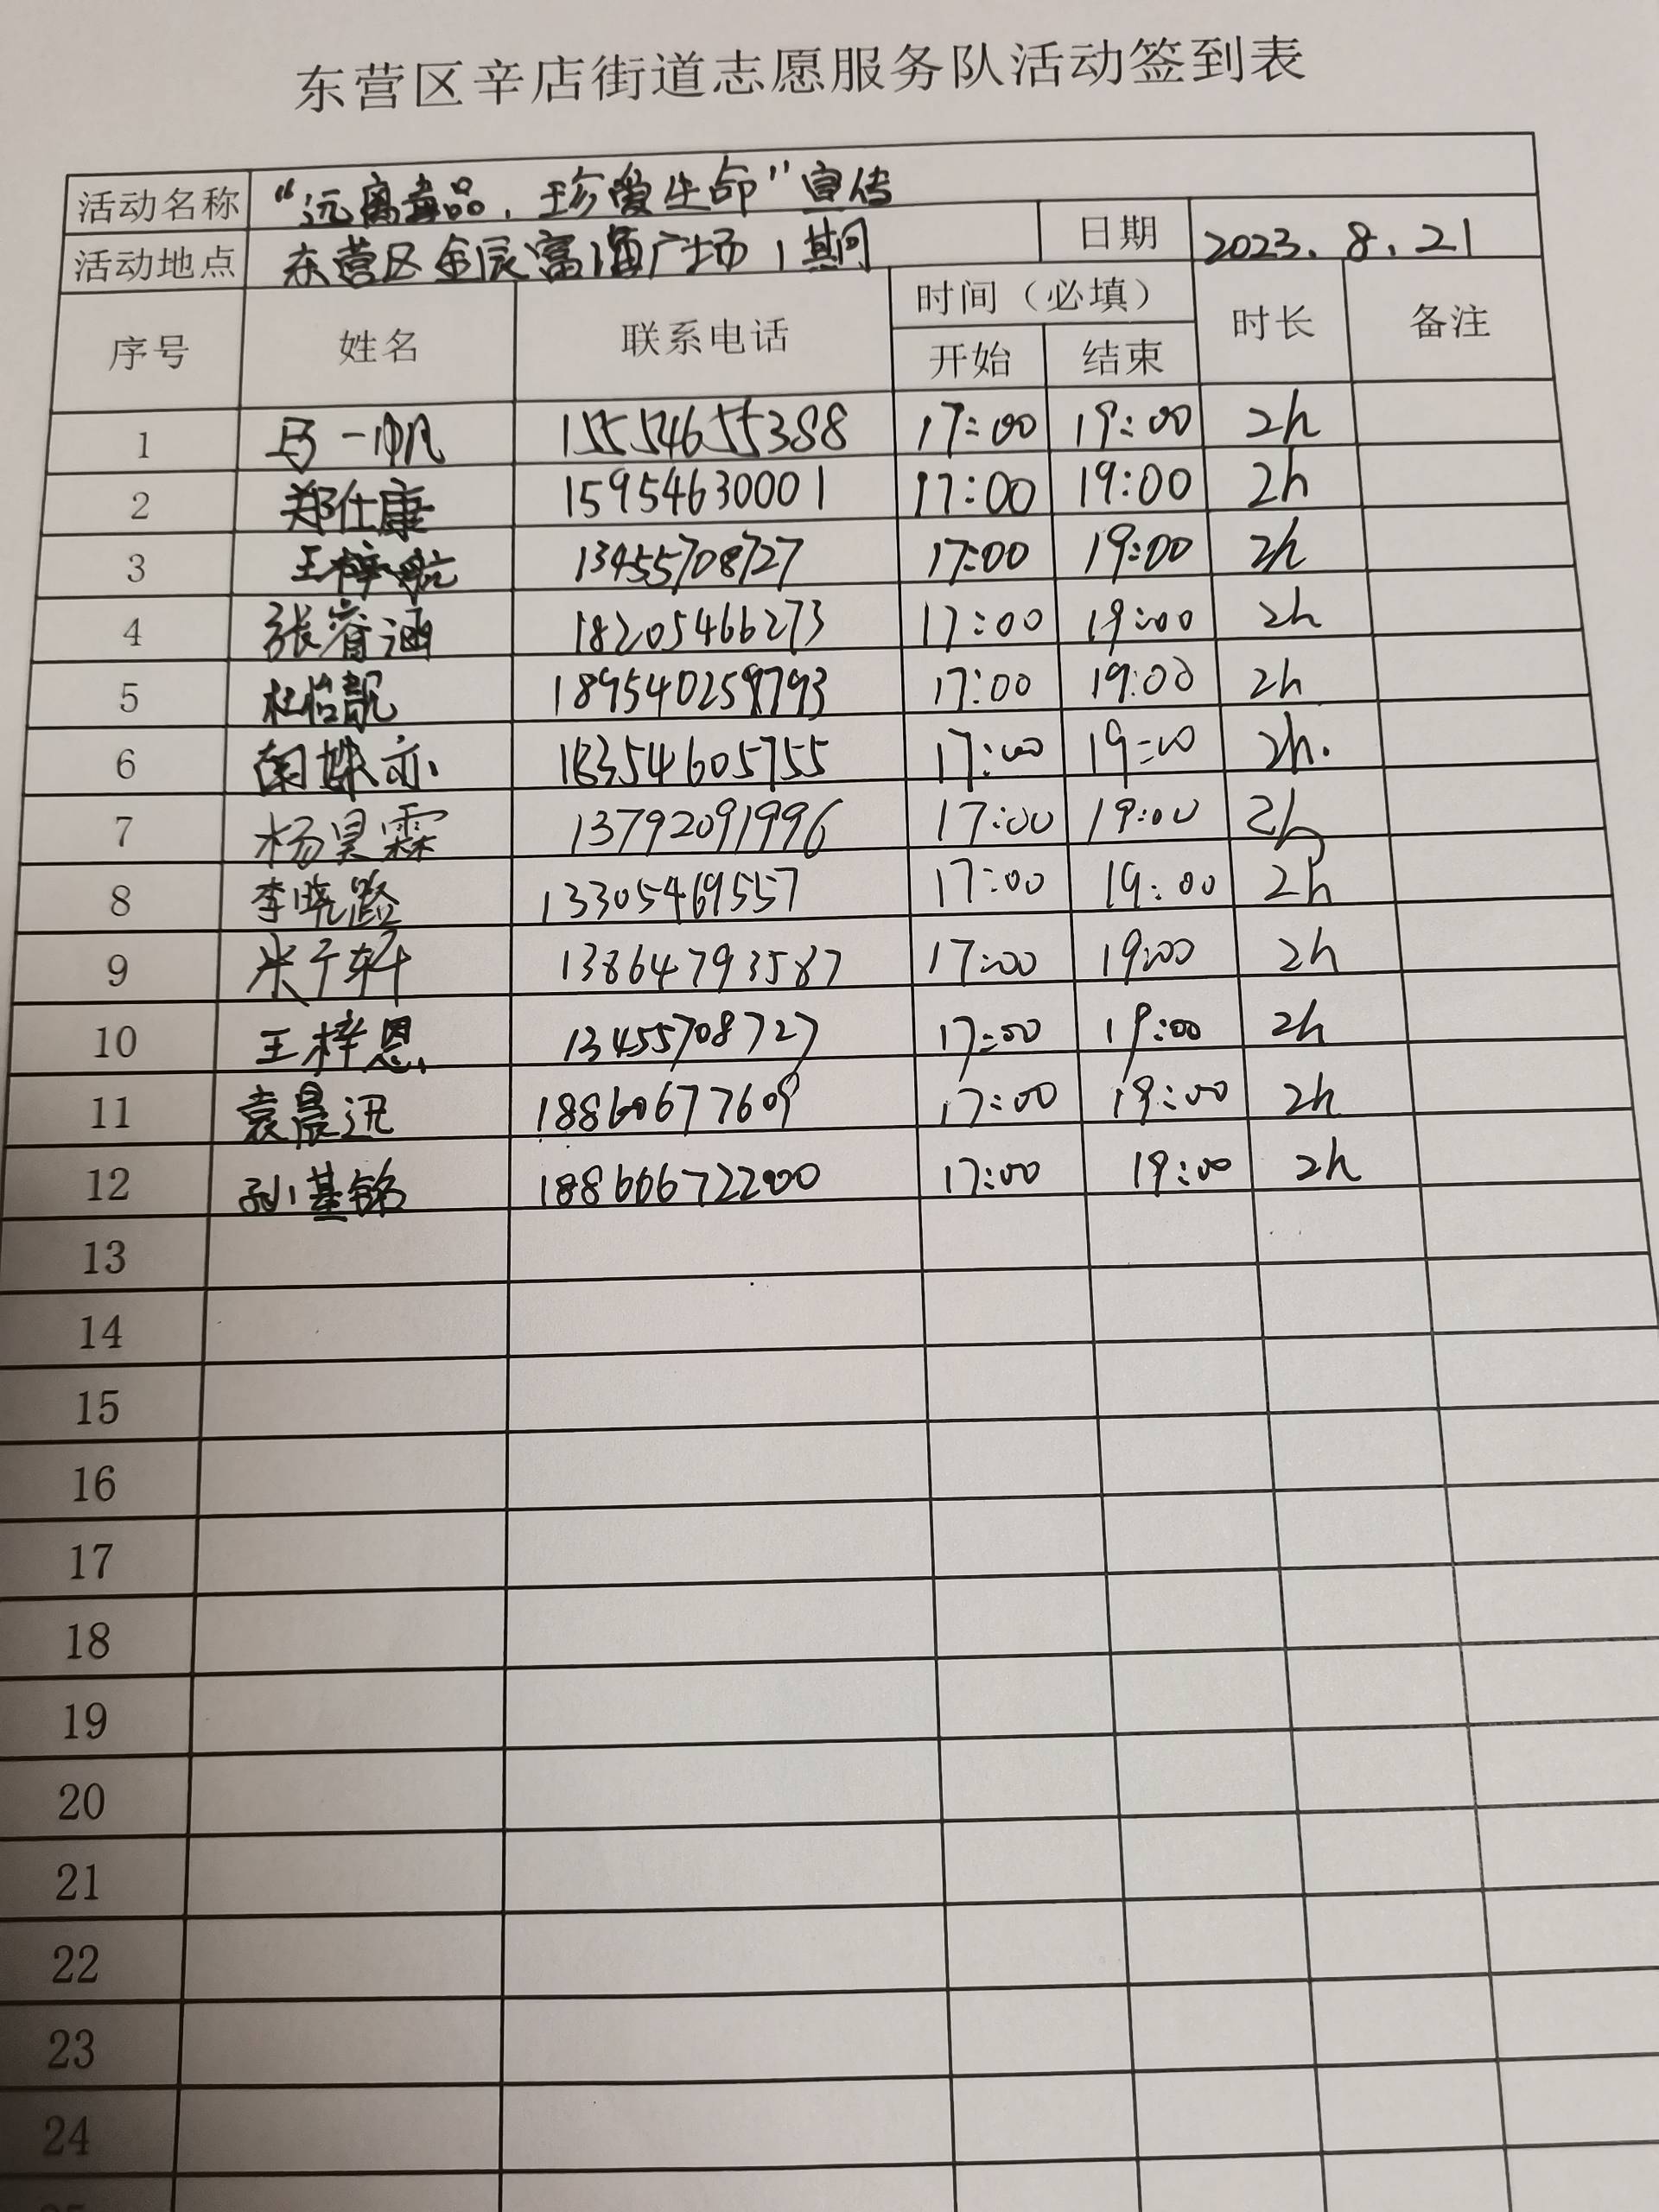 东营区辛店街道志愿服务队活动签到表
活动名称 “远离毒品，珍爱生命”宣传
活动地点 东营区金辰富海广场1期 日期 2023.8.21
序号 姓名 联系电话 时间（必填） 时长 备注
开始 结束
1 马一帆 15554655388 17:00 19:00 2h
2 郑仕康 15954630001 17:00 19:00 2h
3 王梓航 13455708727 17:00 19:00 2h
4 张睿涵 18205466273 17:00 19:00 2h
5 杜怡靓 17:00 19:00 2h
6 18354605755 17:00 19:00 2h.
7 杨昊霖 13792091996 17:00 19:00 2h
8 李晓璐 13305469557 17:00 19:00 2h
9 米于轩 13864793587 17:00 19:00 2h
10 王梓恩 13455708727 17:00 19:00 2h
11 袁晨迅 18860677609 17:00 19:00 2h
12 孙基铭 17:00 19:00 2h
13
14
15
16
17
18
19
20
21
22
23
24